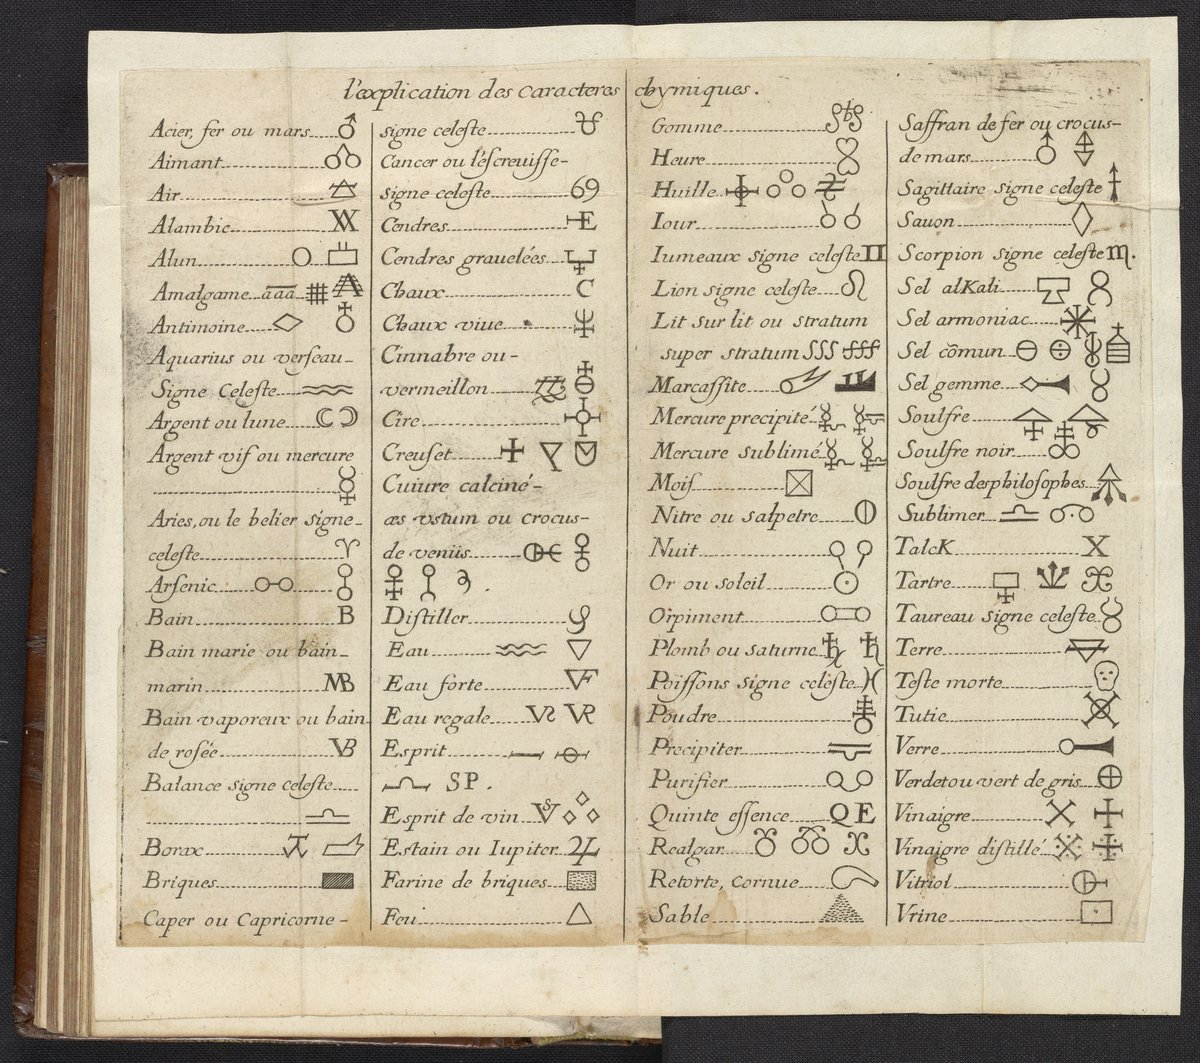 l'explication des caracteres chymiques.
Acier, fer ou mars
Aimant
Air
Alambic
Alun
Amalgame aaa
Antimoine
Aquarius ou verseau
Signe Celeste
Argent ou lune
Argent vif ou mercure
Aries, ou le belier signe
celeste
Arsenic
Bain B
Bain marie ou bain
marin MB
Bain vaporeux ou bain
de rosée VB
Balance signe celeste
Borax
Briques
Caper ou Capricorne
signe celeste
Cancer ou l'éscrevisse
signe celeste 69
Cendres E
Cendres gravelées
Chaux C
Chaux vive
Cinnabre ou
vermeillon
Cire
Creuset
Cuivre calciné
æs vstum ou crocus
de venus
Distiller
Eau
Eau forte VF
Eau regale VR
Esprit
SP.
Esprit de vin VS
Estain ou Iupiter
Farine de briques
Feu
Gomme
Heure
Huille
Iour
Iumeaux signe celeste
Lion signe celeste
Lit sur lit ou stratum
super stratum SSS SSS
Marcassite
Mercure precipité
Mercure sublimé
Mois
Nitre ou salpetre
Nuit
Or ou soleil
Orpiment
Plomb ou saturne
Poissons signe celeste
Poudre
Precipiter
Purifier
Quinte essence QE
Realgar
Retorte, cornue
Sable
Saffran de fer ou crocus
de mars
Sagittaire signe celeste
Savon
Scorpion signe celeste
Sel alKali
Sel armoniac
Sel cõmun
Sel gemme
Soulfre
Soulfre noir
Soulfre des philosophes
Sublimer
TalcK X
Tartre
Taureau signe celeste
Terre
Teste morte
Tutie
Verre
Verdet ou vert de gris
Vinaigre
Vinaigre distillé
Vitriol
Vrine